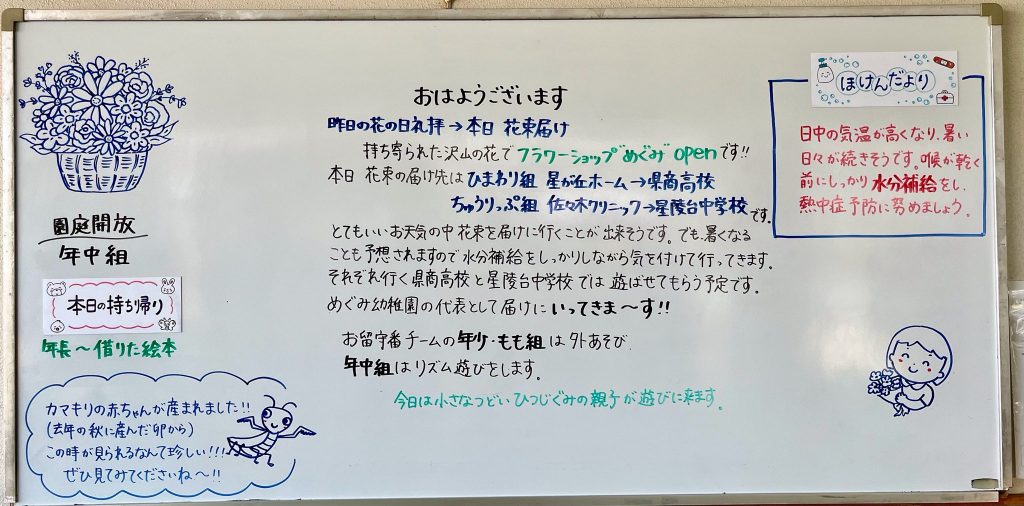 おはようございます
昨日の花の日礼拝→本日 花束届け
持ち寄られた沢山の花でフラワーショップ"めぐみ"openです!!
本日 花束の届け先は ひまわり組 星が丘ホーム→県商高校
ちゅうりっぷ組 佐々木クリニック→星陵台中学校です。
とてもいいお天気の中 花束を届けに行くことが出来そうです。でも、暑くなる
ことも予想されますので 水分補給をしっかりしながら気を付けて行ってきます。
それぞれ行く県商高校と星陵台中学校では 遊ばせてもらう予定です。
めぐみ幼稚園の代表として届けに いってきま〜す!!
お留守番チームの年少・もも組は 外あそび、
年中組はリズム遊びをします。
今日は小さなつどい ひつじぐみの親子が遊びに来ます。
園庭開放
年中組
本日の持ち帰り
年長〜借りた絵本
カマキリの赤ちゃんが産まれました!!
(去年の秋に産んだ卵から)
この時が見られるなんて珍しい!!!
ぜひ見てみてくださいね〜!!
ほけんだより
日中の気温が高くなり、暑い
日々が続きそうです。喉が乾く
前にしっかり水分補給をし、
熱中症予防に努めましょう。